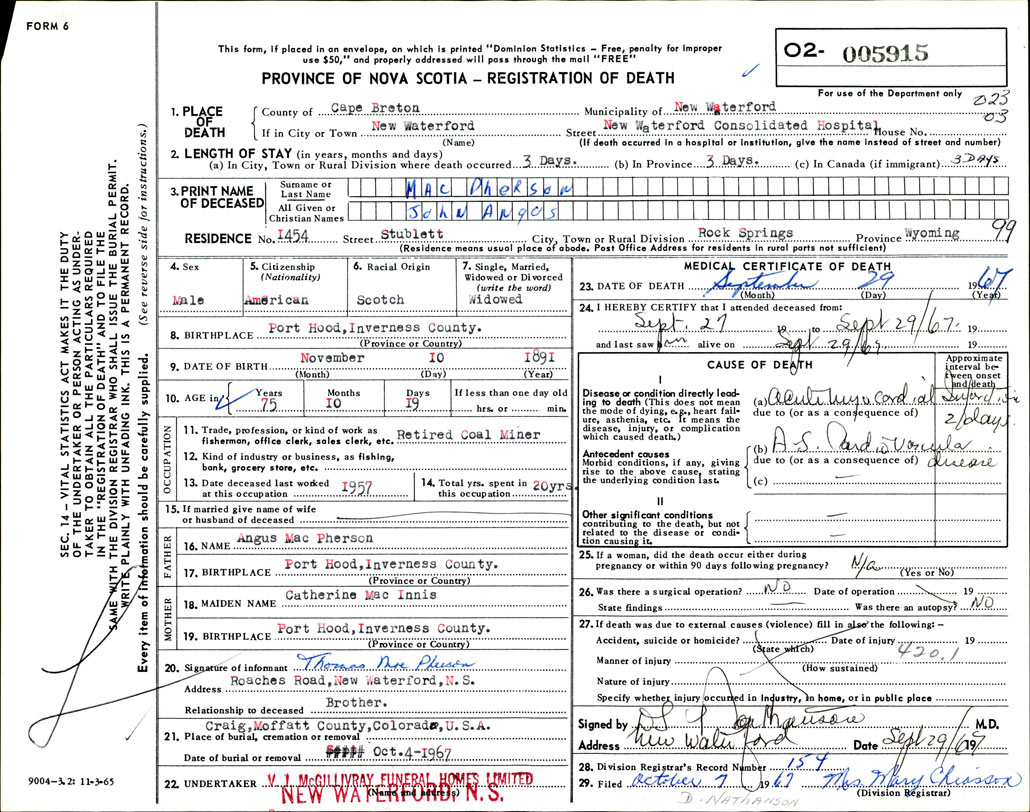 FORM 6
This form, if placed in an envelope, on which is printed "Dominion Statistics – Free, penalty for improper
use $50," and properly addressed will pass through the mail "FREE"
PROVINCE OF NOVA SCOTIA – REGISTRATION OF DEATH
O2- 005915
For use of the Department only
023
03
1. PLACE OF DEATH
County of Cape Breton Municipality of New Waterford
If in City or Town New Waterford Street New Waterford Consolidated Hospital House No.
(Name) (If death occurred in a hospital or institution, give the name instead of street and number)
2. LENGTH OF STAY (in years, months and days)
(a) In City, Town or Rural Division where death occurred 3 Days. (b) In Province 3 Days. (c) In Canada (if immigrant) 3 DAYS
3. PRINT NAME OF DECEASED
Surname or Last Name MAC PHERSON
All Given or Christian Names JOHN ANGUS
RESIDENCE No. I454 Street Stublett City, Town or Rural Division Rock Springs Province Wyoming 99
(Residence means usual place of abode. Post Office Address for residents in rural parts not sufficient)
4. Sex
Male
5. Citizenship
(Nationality)
American
6. Racial Origin
Scotch
7. Single, Married,
Widowed or Divorced
(write the word)
Widowed
8. BIRTHPLACE Port Hood,Inverness County.
(Province or Country)
9. DATE OF BIRTH November I0 I89I
(Month) (Day) (Year)
10. AGE in Years Months Days If less than one day old
75 I0 I9 hrs. or min.
OCCUPATION
11. Trade, profession, or kind of work as
fisherman, office clerk, sales clerk, etc. Retired Coal Miner
12. Kind of industry or business, as fishing,
bank, grocery store, etc.
13. Date deceased last worked
at this occupation I957
14. Total yrs. spent in
this occupation 20yrs
15. If married give name of wife
or husband of deceased
FATHER
16. NAME Angus Mac Pherson
17. BIRTHPLACE Port Hood,Inverness County.
(Province or Country)
MOTHER
18. MAIDEN NAME Catherine Mac Innis
19. BIRTHPLACE Port Hood,Inverness County.
(Province or Country)
20. Signature of informant Thomas Mac Pherson
Address Roaches Road,New Waterford,N.S.
Relationship to deceased Brother.
Craig,Moffatt County,Colorado,U.S.A.
21. Place of burial, cremation or removal
Date of burial or removal Oct.4-I967
22. UNDERTAKER V. J. McGILLIVRAY FUNERAL HOMES LIMITED
(Name and address)
NEW WATERFORD, N. S.
MEDICAL CERTIFICATE OF DEATH
23. DATE OF DEATH September 29 1967
(Month) (Day) (Year)
24. I HEREBY CERTIFY that I attended deceased from:
Sept. 27 19 to Sept 29/67. 19
and last saw him alive on Sept 29/67 19
CAUSE OF DEATH
Approximate
interval be-
tween onset
and death
I
Disease or condition directly lead-
ing to death (This does not mean
the mode of dying, e.g., heart fail-
ure, asthenia, etc. It means the
disease, injury, or complication
which caused death.)
(a) Acute myocardial
due to (or as a consequence of)
2 days
Antecedent causes
Morbid conditions, if any, giving
rise to the above cause, stating
the underlying condition last.
(b) A-S. Cardio Vascular
due to (or as a consequence of) disease
(c) —
II
Other significant conditions
contributing to the death, but not
related to the disease or condi-
tion causing it.
25. If a woman, did the death occur either during
pregnancy or within 90 days following pregnancy? N/a
(Yes or No)
26. Was there a surgical operation? NO Date of operation 19
State findings — Was there an autopsy? NO
27. If death was due to external causes (violence) fill in also the following: –
Accident, suicide or homicide? Date of injury 19
(State which) 420.1
Manner of injury
(How sustained)
Nature of injury
Specify whether injury occurred in Industry, in home, or in public place
Signed by M.D.
Address New Waterford Date Sept 29/67 19
28. Division Registrar's Record Number 154
29. Filed October 7 1967 Mrs. Mary Chiasson
(Division Registrar)
D-NATHANSON
9004-3.2: 11-3-65
SEC. 14 – VITAL STATISTICS ACT MAKES IT THE DUTY
OF THE UNDERTAKER OR PERSON ACTING AS UNDER-
TAKER TO OBTAIN ALL THE PARTICULARS REQUIRED
IN THE "REGISTRATION OF DEATH" AND TO FILE THE
SAME WITH THE DIVISION REGISTRAR WHO SHALL ISSUE THE BURIAL PERMIT.
WRITE PLAINLY WITH UNFADING INK. THIS IS A PERMANENT RECORD.
Every item of information should be carefully supplied. (See reverse side for instructions.)